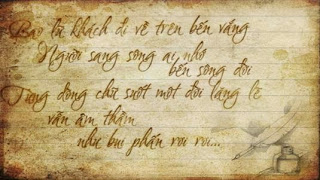 Bao lũ khách đi về trên bến vắng
Người sang sông ai nhớ
bến sông đời
Từng dòng chữ suốt một đời lặng lẽ
vẫn âm thầm
như bụi phấn rơi rơi...